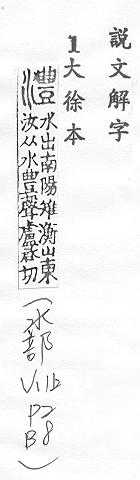 說文解字
1大徐本
灃 水出南陽雉衡山東
汝从水豊聲盧啓切
(水部 V11b
P2
B8)